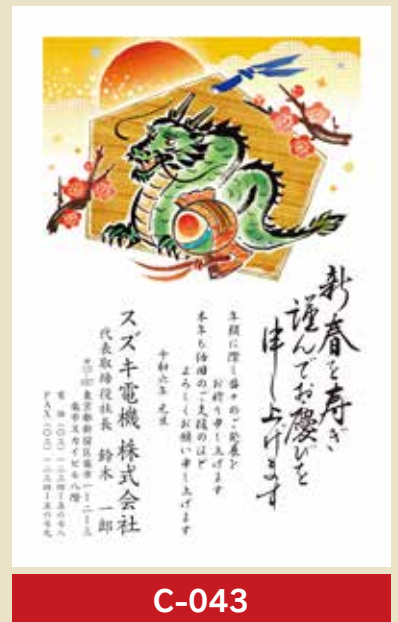 新春を寿ぎ
謹んでお慶びを
申し上げます
年頭に際し益々のご発展を
お祈り申し上げます
本年も倍旧のご支援のほど
よろしくお願い申し上げます
令和六年 元旦
スズキ電機 株式会社
代表取締役社長 鈴木 一郎
東京都新宿区
電話(〇三)一二三四-五六七八
FAX(〇三)一二三四-五六七九
C-043